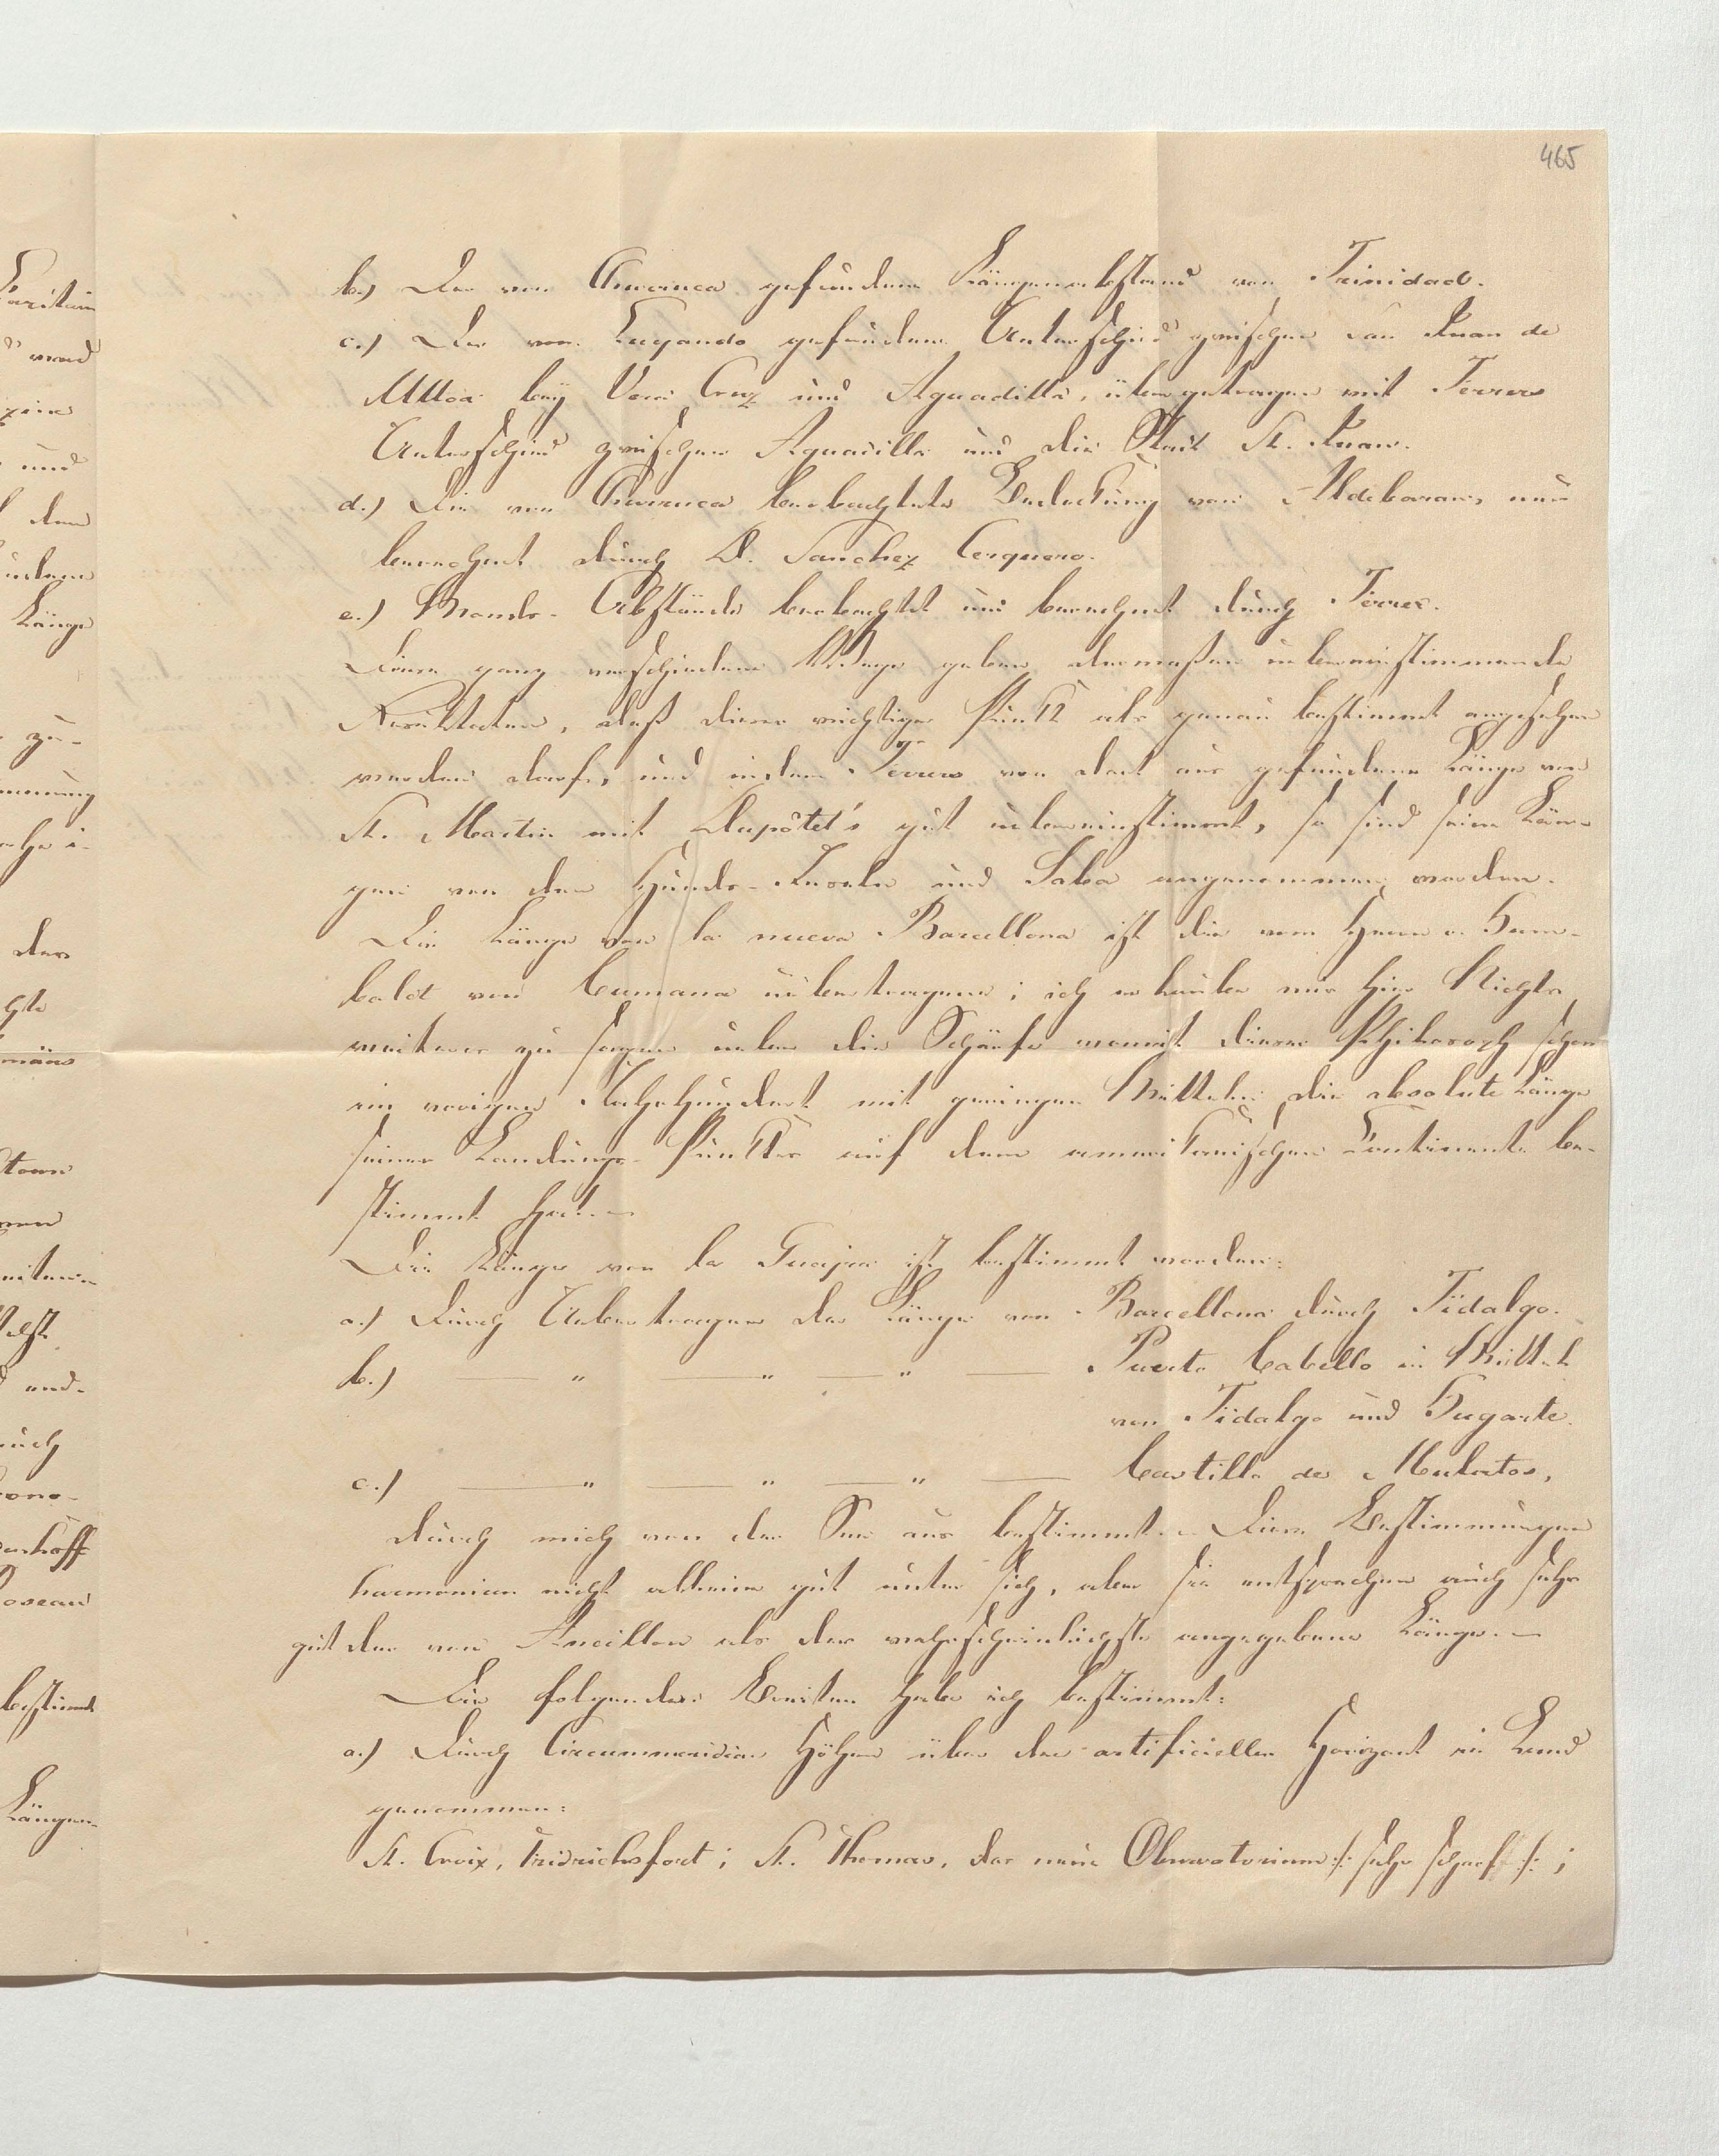 465
b.) Der von Churruca gefundene Längenabstand von Trinidad.
c.) Der von Lugando gefundene Unterschied zwischen San Juan de
Ulloa bey Vera Cruz und Aguadilla, übergetragen mit Ferrers
Unterschied zwischen Aguadilla und die Stadt St. Juan.
d.) Die von Churruca beobachtete Bedeckung von Aldebaran, neu
berechnet durch D. Sanchez Cerquero.
e.) Monds-Abstände beobachtet und berechnet durch Ferrer.
Diese ganz verschiedene Wege geben dermaßen übereinstimmende
Resultaten, daß dieser wichtige Punkt als genau bestimmt angesehen
werden darf, und indem Ferrers von dort aus gefundene Länge von
St. Martin mit Dupôtet's gut übereinstimmt, so sind seine Län-
gen von den Hunds-Inseln und Saba angenommen worden.
Die Länge von la nueva Barcellona ist die vom Herrn v. Hum-
boldt von Cumana übertragene; ich erlaube mir hier Nichts
weiteres zu sagen über die Schärfe womit dieser Philosoph schon
im vorigen Jahrhundert mit geringen Mitteln die absolute Länge
seiner Landungs-Punktes auf dem amerikanischen Continente be-
stimmt hat.
Die Länge von la Guajra ist bestimmt worden:
a.) Durch Uebertragen der Länge von Barcellona durch Fidalgo.
b.) — " — " — " — Puerto Cabello in Mittel
von Fidalgo und Hugarte.
c.) — " — " — " — Castillo de Mulatos,
durch mich von der See aus bestimmt. Diese Bestimmungen
harmonieren nicht alleine gut unter sich, aber sie entsprechen auch sehr
gut der von Ancillon als der wahrscheinlichste angegebene Länge.
Die folgenden Breiten habe ich bestimmt:
a.) Durch Circummeridian Höhen über den artificiellen Horizont in Land
genommen:
St. Croix, Fridrichsfort; St. Thomas, das neue Observatorium /: sehr scharf :/;
Längen-